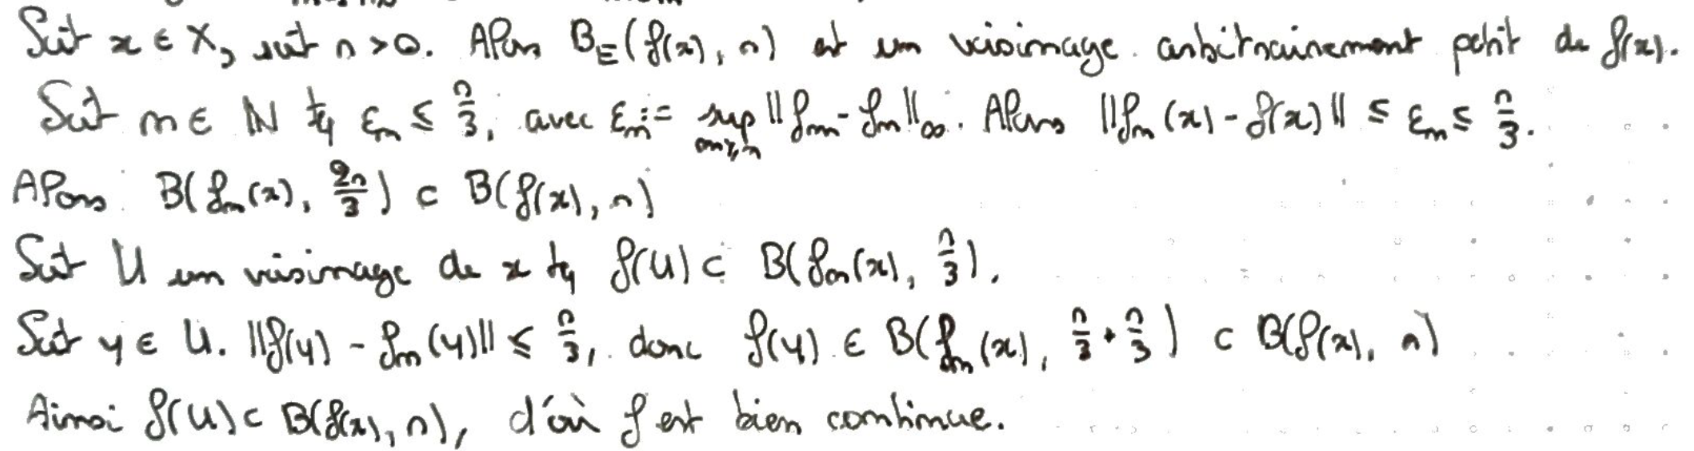 Soit x ∈ X, soit r > 0. Alors B_E(f(x), r) est un voisinage arbitrairement petit de f(x).
Soit n ∈ ℕ tq ε_n ≤ r/3, avec ε_n := sup_{m≥n} ||f_m - f_n||_∞. Alors ||f_n(x) - f(x)|| ≤ ε_n ≤ r/3.
Alors B(f_n(x), 2r/3) ⊂ B(f(x), r)
Soit U un voisinage de x tq f(U) ⊂ B(f_n(x), r/3).
Soit y ∈ U. ||f(y) - f_n(y)|| ≤ r/3, donc f(y) ∈ B(f_n(x), r/3 + r/3) ⊂ B(f(x), r)
Ainsi f(U) ⊂ B(f(x), r), d'où f est bien continue.